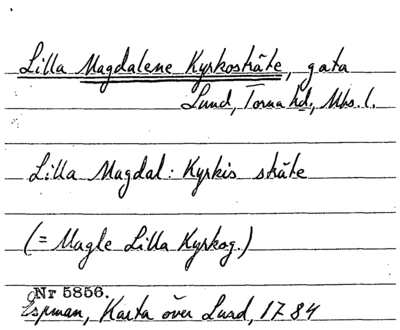 Lilla Magdalene Kyrkosträte, gata
Lund, Torna hd., Mhs. l.
Lilla Magdal: Kyrkis sträte
(= Magle Lilla Kyrkog.)
Nr 5856.
Espman, Karta över Lund, 1784